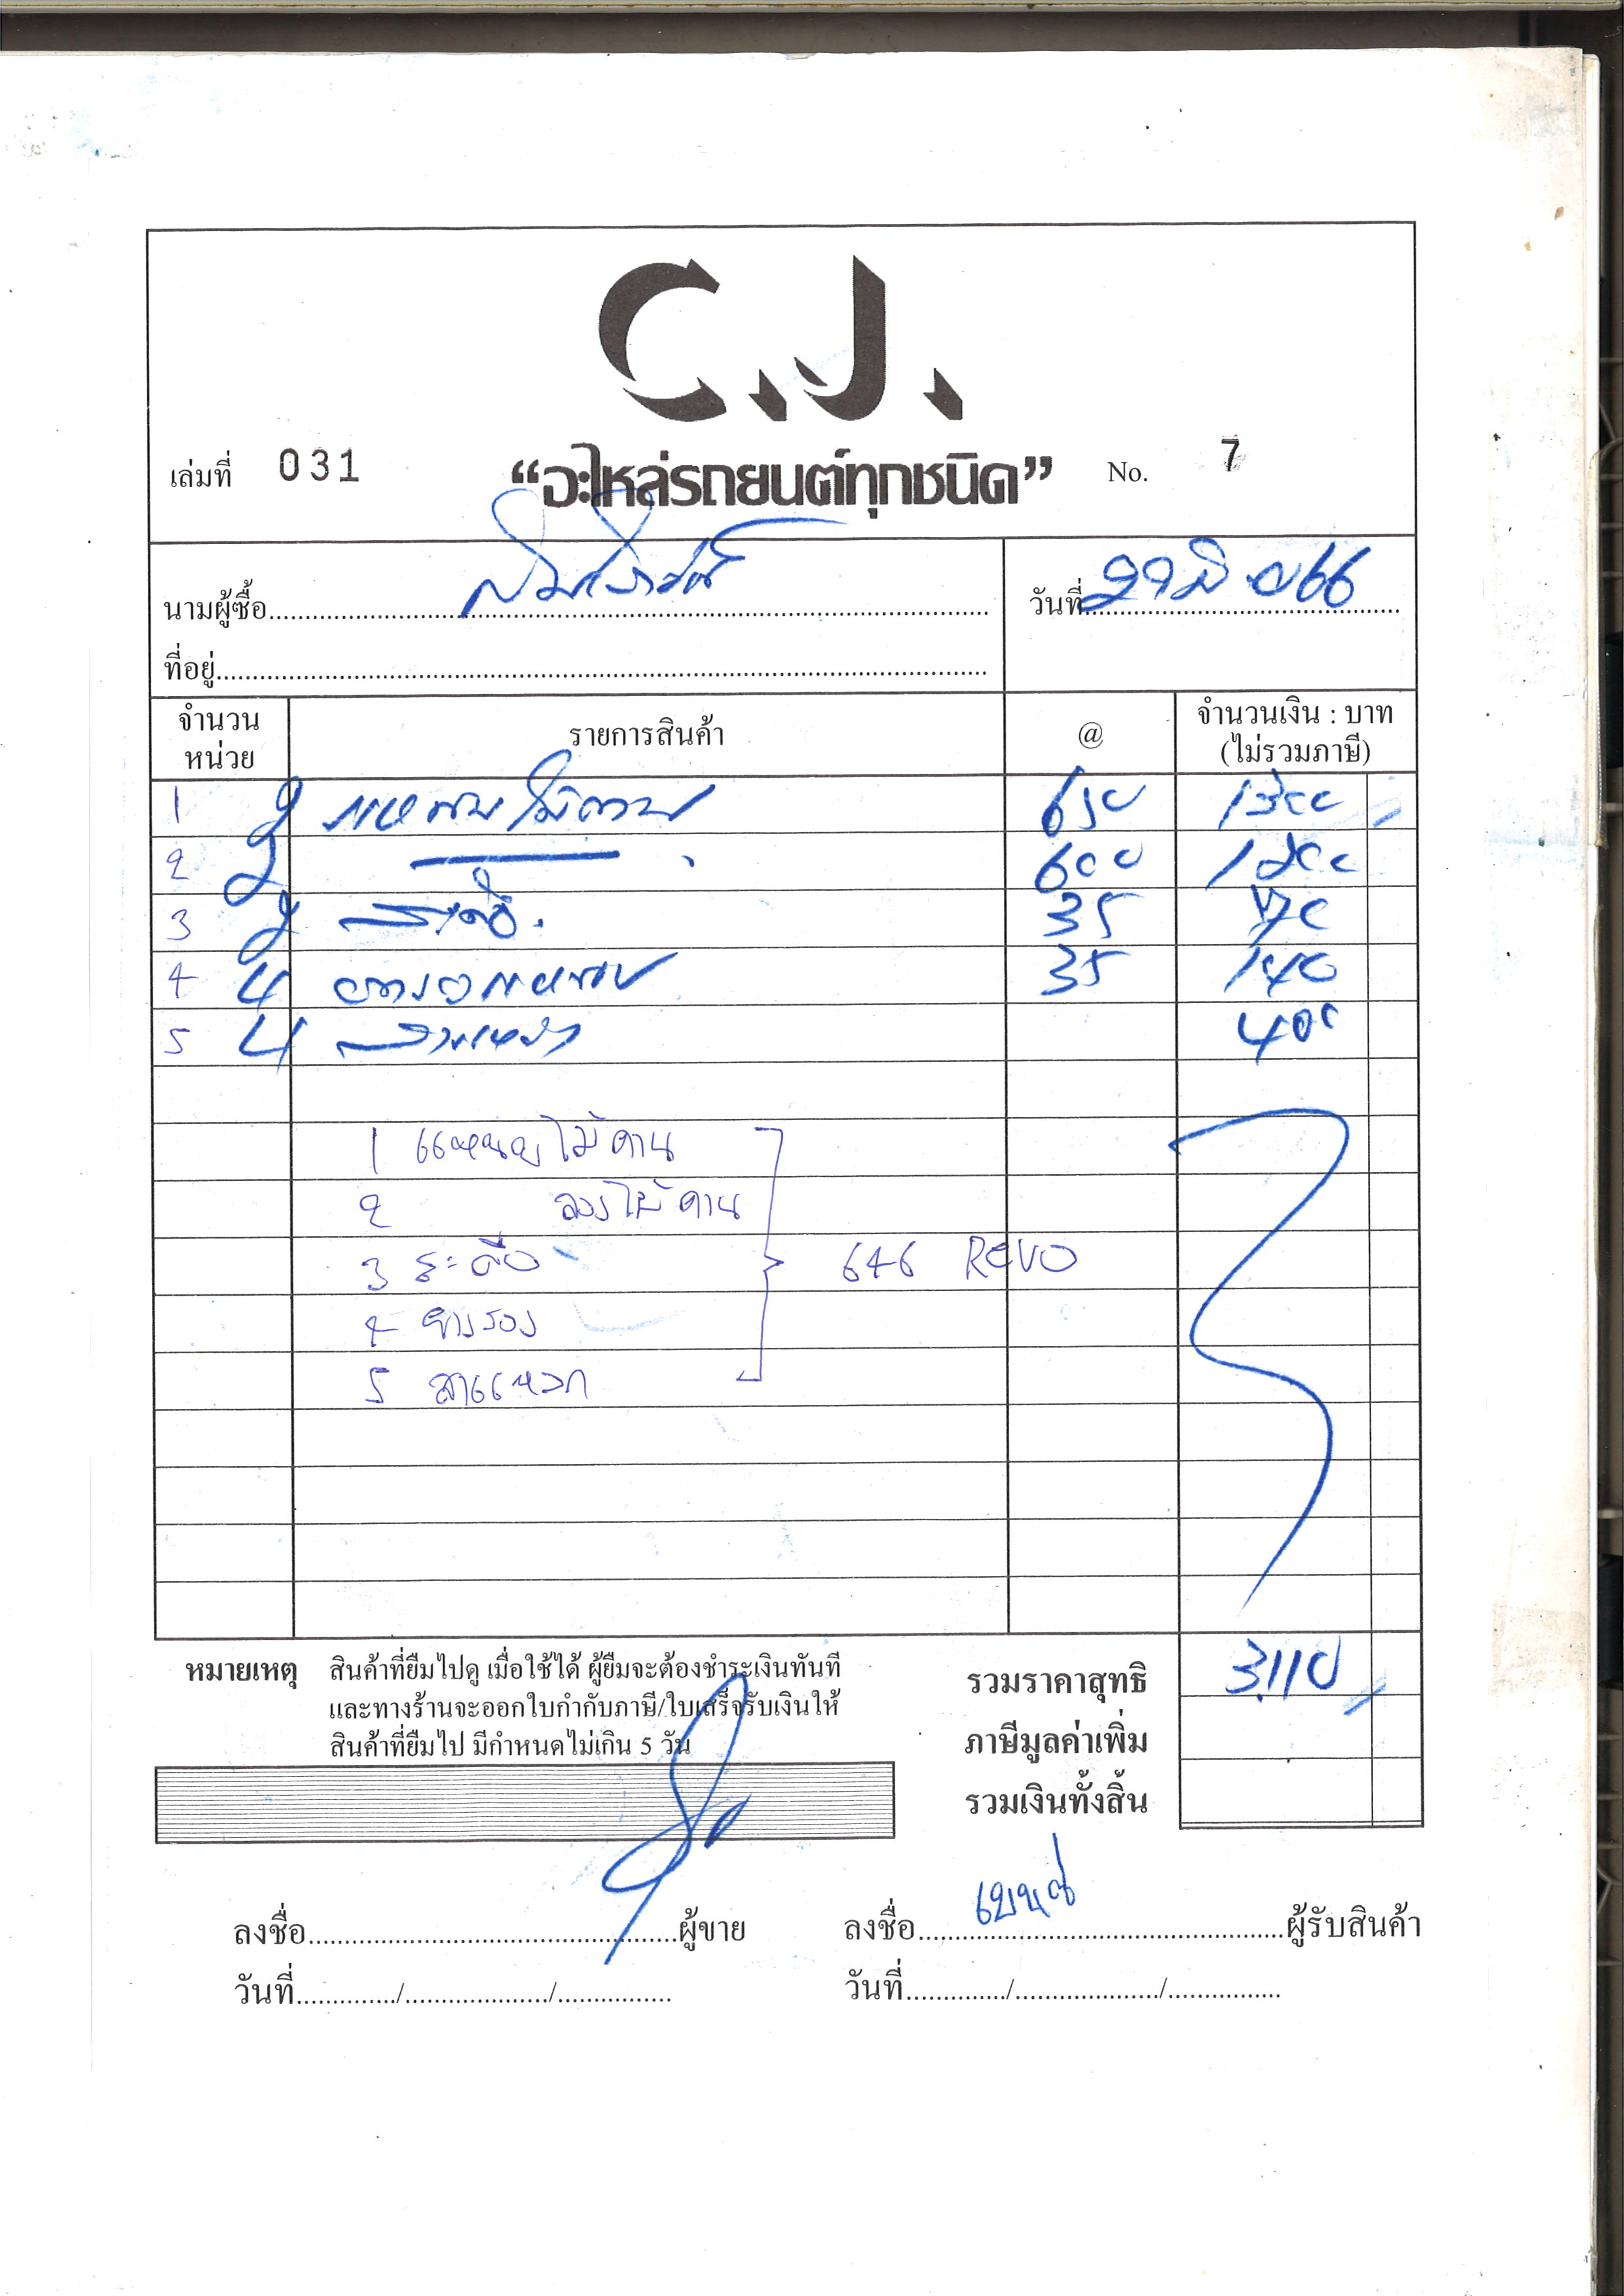 C.J.
เล่มที่ 031 “อะไหล่รถยนต์ทุกชนิด” No. 7
นามผู้ซื้อ
วันที่ 29 มิ.ย 66
ที่อยู่
จำนวน หน่วย รายการสินค้า @ จำนวนเงิน : บาท (ไม่รวมภาษี)
1 2 แหนบไม้คาน 650 1300
2 2 600 1200
3 2 สะดือ 35 70
4 4 ยางรองแหนบ 35 140
5 4 สาแหรก 400
1 แหนบไม้คาน
2 รองไม้คาน
3 สะดือ 646 REVO
4 ยางรอง
5 สาแหรก
หมายเหตุ สินค้าที่ยืมไปดู เมื่อใช้ได้ ผู้ยืมจะต้องชำระเงินทันที
และทางร้านจะออกใบกำกับภาษี/ใบเสร็จรับเงินให้
สินค้าที่ยืมไป มีกำหนดไม่เกิน 5 วัน
รวมราคาสุทธิ 3,110
ภาษีมูลค่าเพิ่ม
รวมเงินทั้งสิ้น
ลงชื่อ ผู้ขาย ลงชื่อ เบนซ์ ผู้รับสินค้า
วันที่ / / วันที่ / /